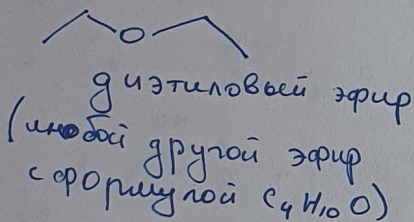 O
диэтиловый эфир
(любой другой эфир
с формулой C₄H₁₀O)